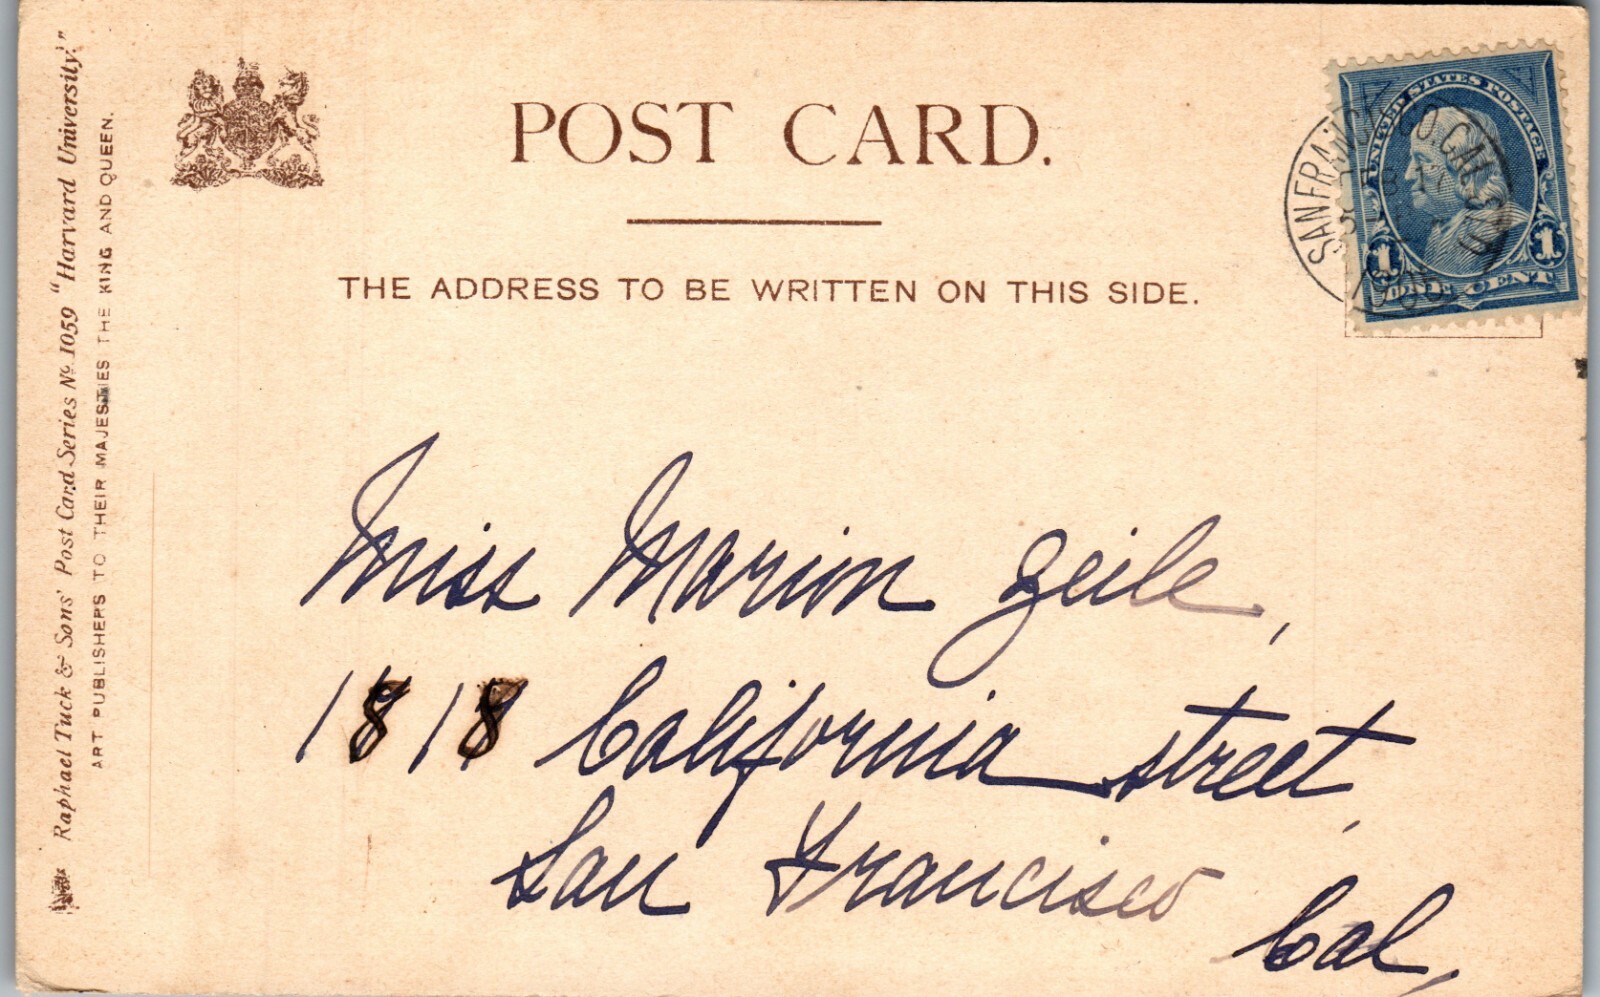 Raphael Tuck & Sons' Post Card Series No. 1059 "Harvard University."
ART PUBLISHERS TO THEIR MAJESTIES THE KING AND QUEEN.
POST CARD.
THE ADDRESS TO BE WRITTEN ON THIS SIDE.
UNITED STATES POSTAGE
1 1
ONE CENT
SAN FRANCISCO CAL.
Miss Marion Zeile,
1818 California street,
San Francisco
Cal.